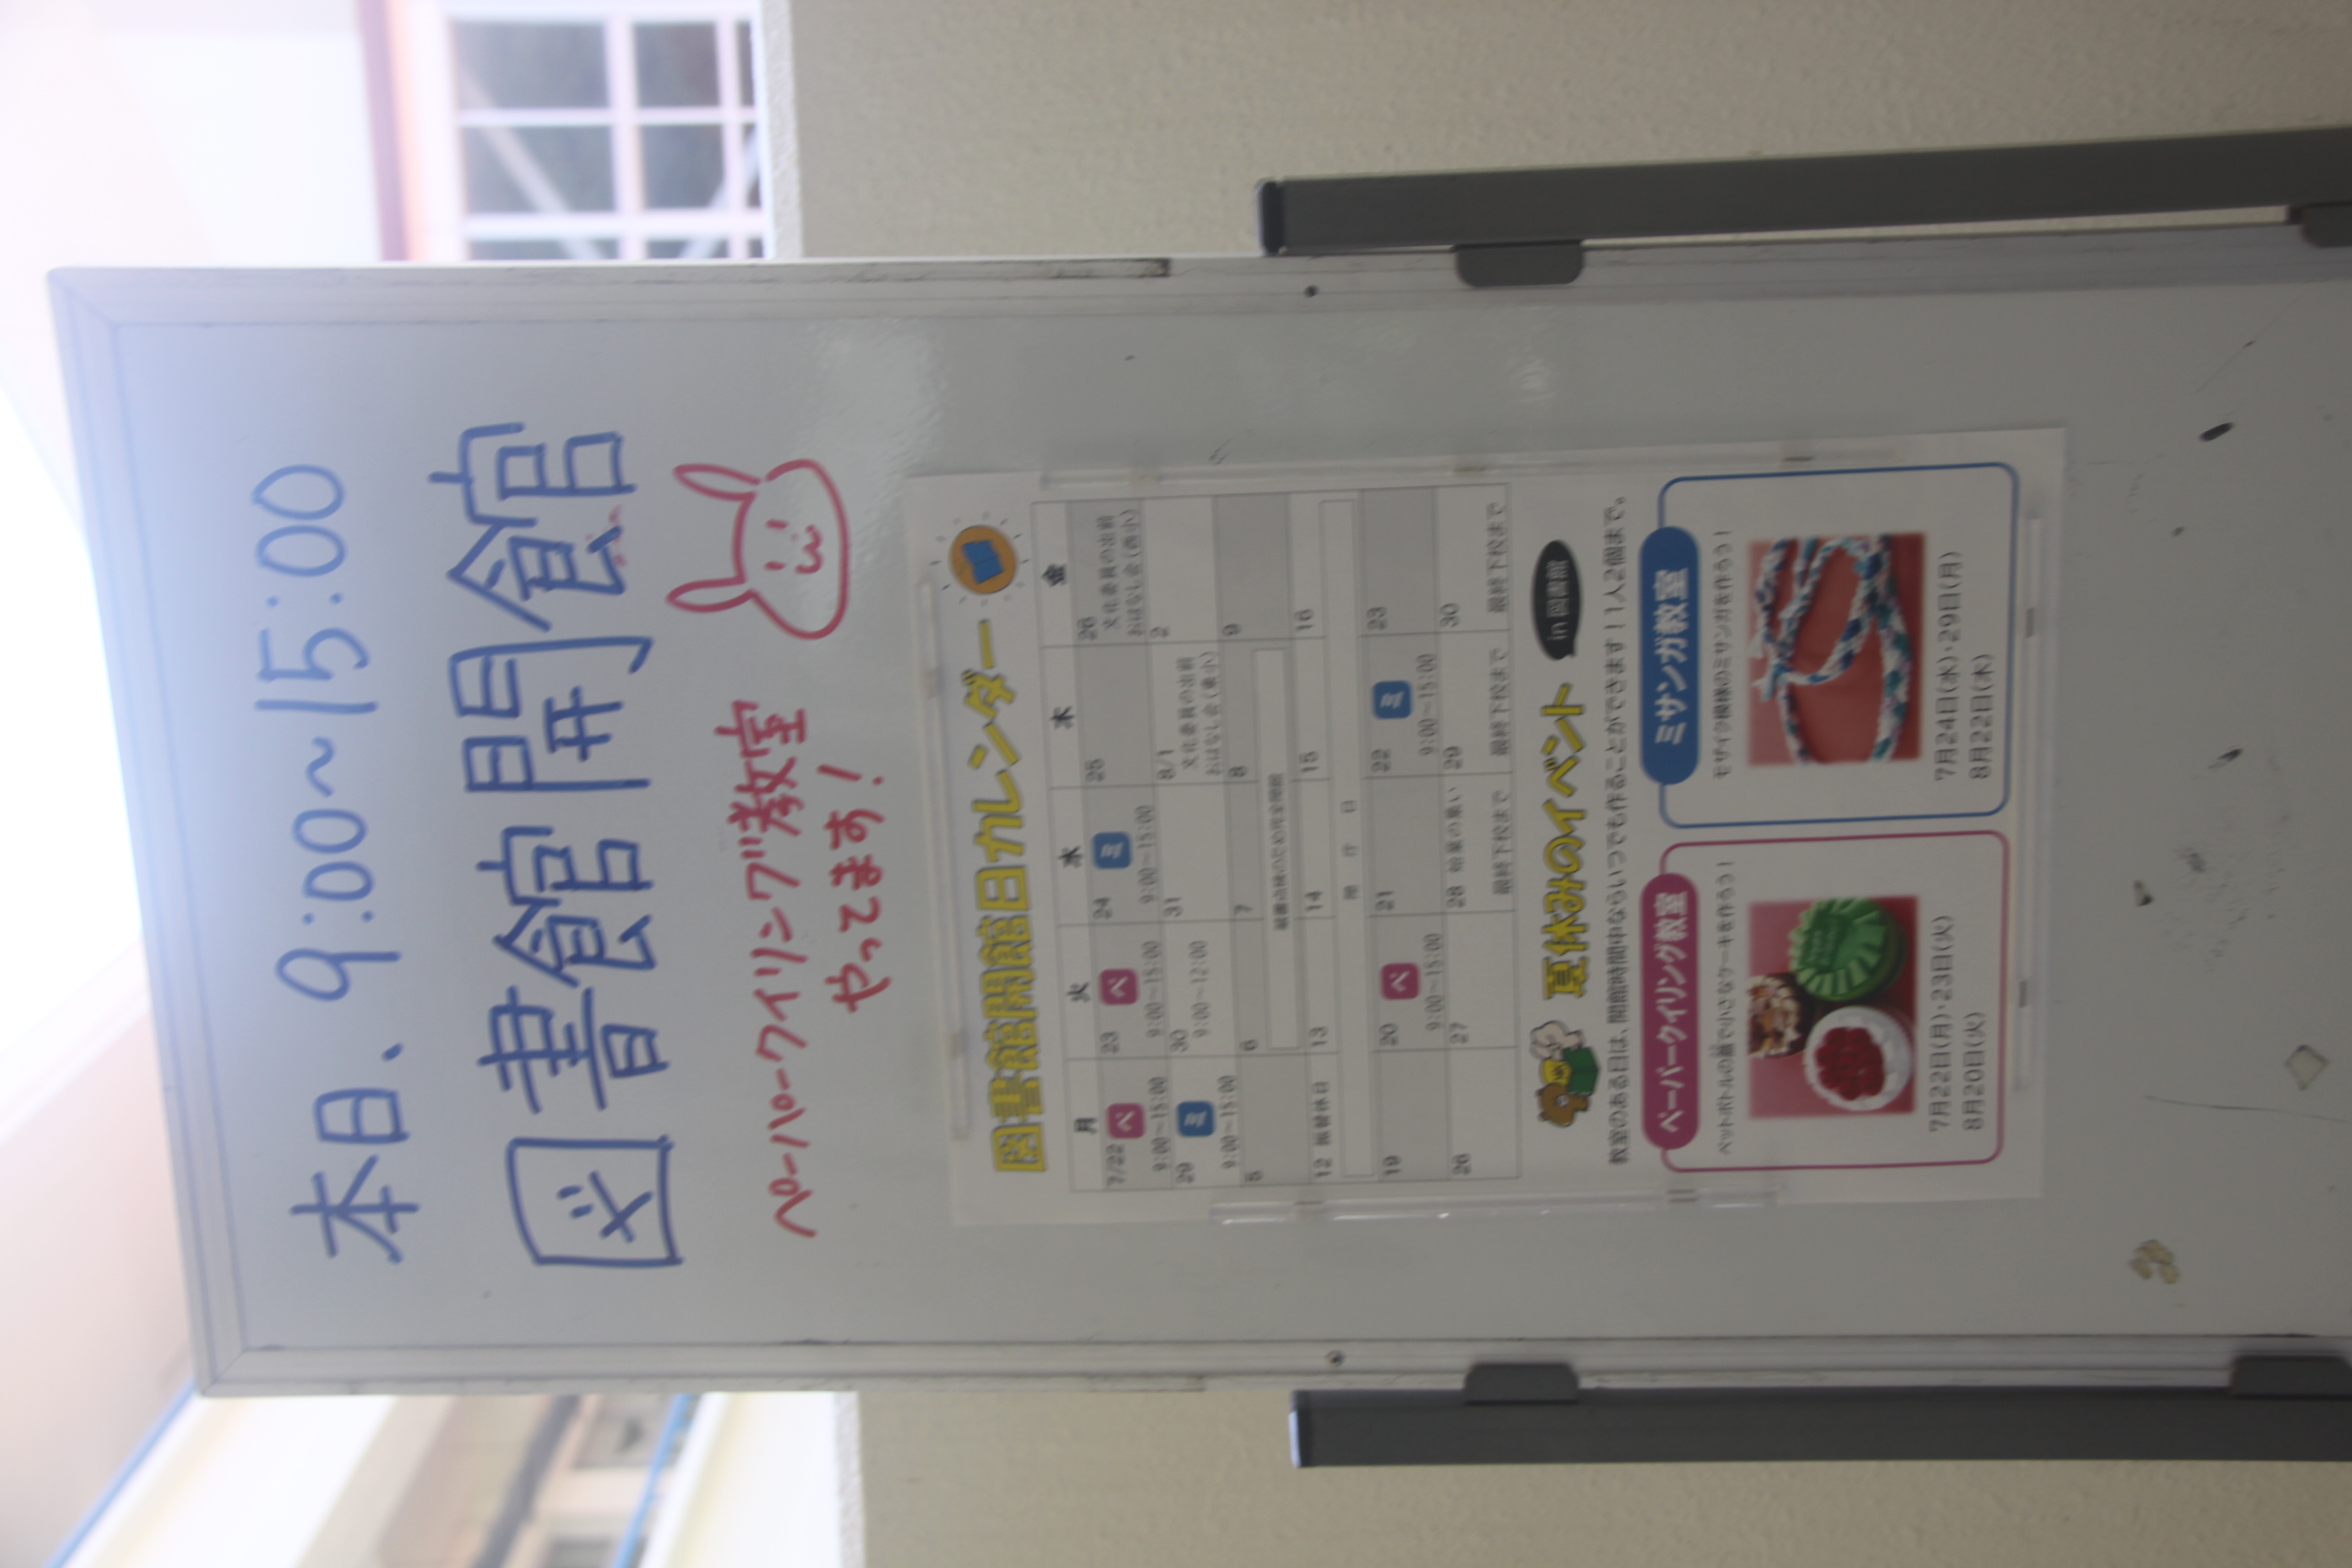 本日、9:00~15:00
図書館開館
ペーパークイリング教室
やってます！
図書館開館日カレンダー
月 火 水 木 金
7/22 ペ 9:00~15:00
23 ペ 9:00~15:00
24 ミ 9:00~15:00
25
26 文化委員の出前おはなし会(西小)
29 ミ 9:00~15:00
30 9:00~12:00
31
8/1 文化委員の出前おはなし会(東小)
2
5 6 7 8 9
12 振替休日 13 14 15 16
閉庁日
19
20 ペ 9:00~15:00
21
22 ミ 9:00~15:00
23
26 27
28 始業の集い 最終下校まで
29 最終下校まで
30 最終下校まで
夏休みのイベント in 図書館
教室のある日は、開館時間中ならいつでも作ることができます！1人2個まで。
ペーパークイリング教室
ペットボトルの蓋で小さなケーキを作ろう！
7月22日(月)・23日(火)
8月20日(火)
ミサンガ教室
モザイク模様のミサンガを作ろう！
7月24日(水)・29日(月)
8月22日(木)